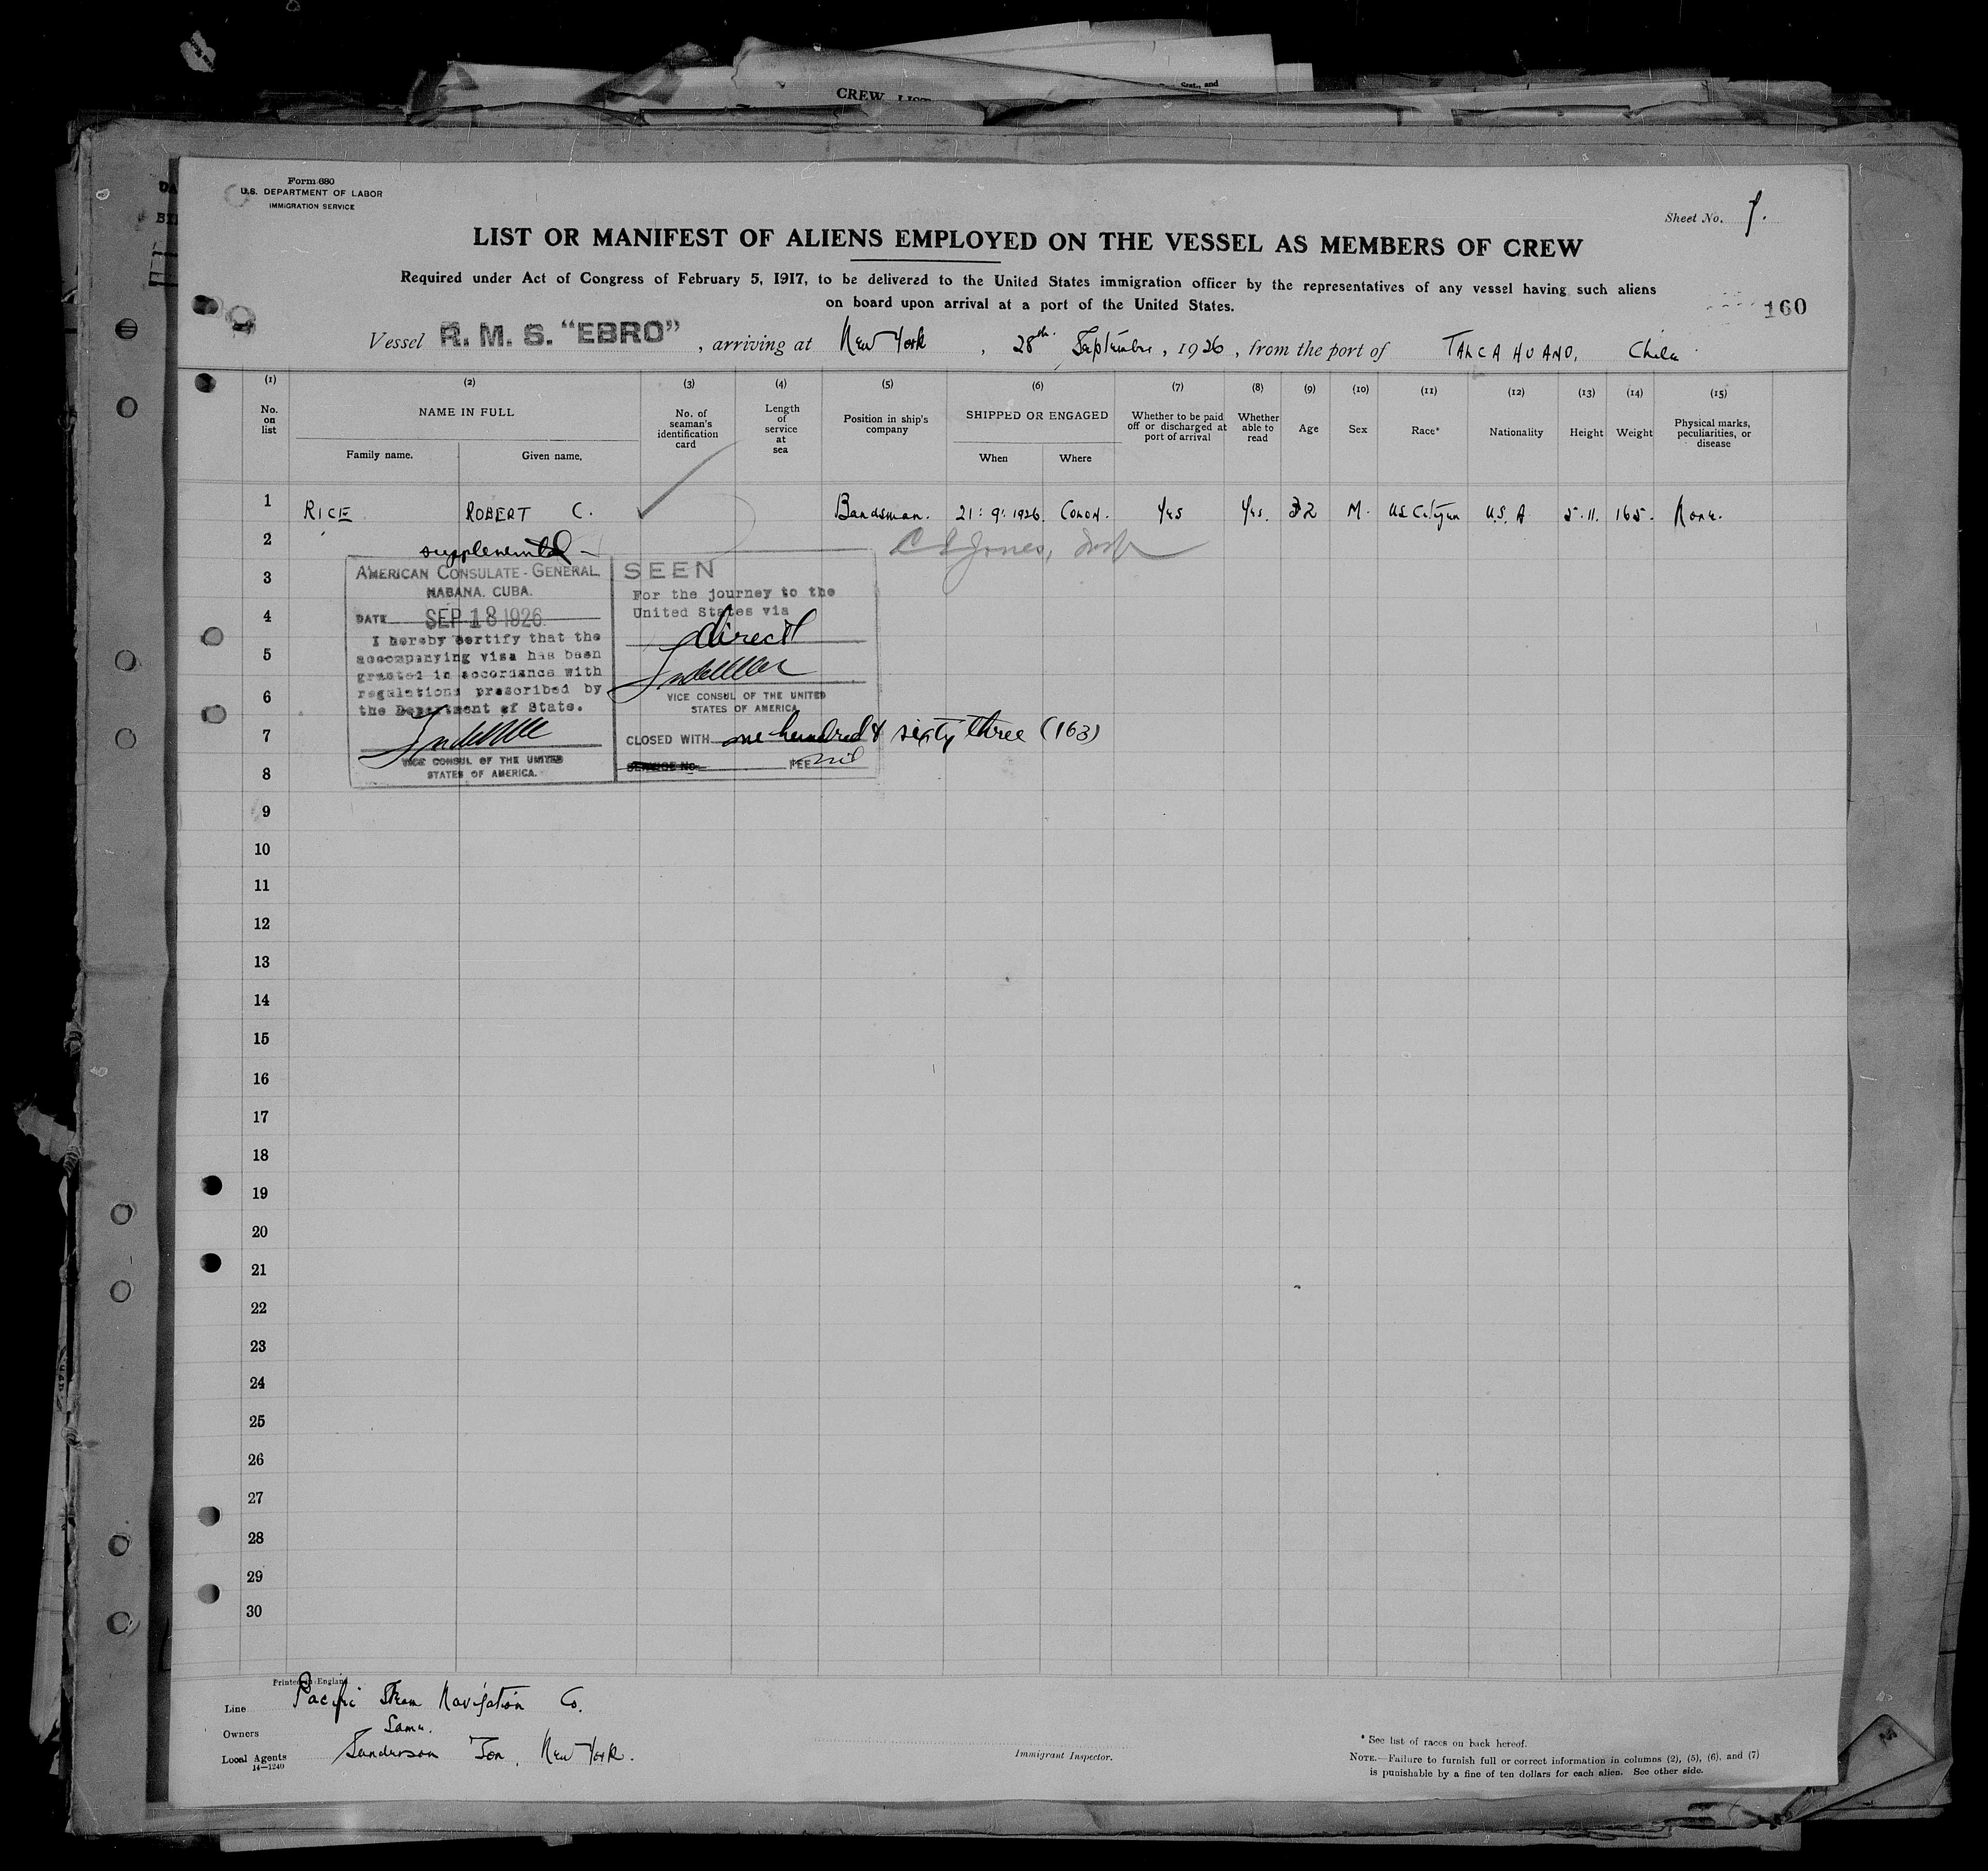 CREW LIST
Form 680
U.S. DEPARTMENT OF LABOR
IMMIGRATION SERVICE
Sheet No. 7.
LIST OR MANIFEST OF ALIENS EMPLOYED ON THE VESSEL AS MEMBERS OF CREW
Required under Act of Congress of February 5, 1917, to be delivered to the United States immigration officer by the representatives of any vessel having such aliens
on board upon arrival at a port of the United States.
160
Vessel R. M. S. "EBRO", arriving at New York, 28th September, 1926, from the port of TALCAHUANO, Chile
(1) (2) (3) (4) (5) (6) (7) (8) (9) (10) (11) (12) (13) (14) (15)
No. on list NAME IN FULL Family name. Given name. No. of seaman's identification card Length of service at sea Position in ship's company SHIPPED OR ENGAGED When Where Whether to be paid off or discharged at port of arrival Whether able to read Age Sex Race* Nationality Height Weight Physical marks, peculiarities, or disease
1 RICE ROBERT C. Bandsman. 21: 9: 1926. Colon. Yes Yes. 32 M. US Citizen U.S.A 5.11. 165. None.
2
supplemental
AMERICAN CONSULATE-GENERAL
HABANA. CUBA.
DATE SEP 18 1926
I hereby certify that the
accompanying visa has been
granted in accordance with
regulations prescribed by
the Department of State.
VICE CONSUL OF THE UNITED
STATES OF AMERICA.
SEEN
For the journey to the
United States via
direct
VICE CONSUL OF THE UNITED
STATES OF AMERICA
CLOSED WITH one hundred & sixty three (163)
SERVICE No. FEE nil
3
4
5
6
7
8
9
10
11
12
13
14
15
16
17
18
19
20
21
22
23
24
25
26
27
28
29
30
Printed in England
Line Pacific Steam Navigation Co.
Owners Same.
Local Agents Sanderson & Son, New York.
14—1240
Immigrant Inspector.
* See list of races on back hereof.
NOTE.—Failure to furnish full or correct information in columns (2), (5), (6), and (7)
is punishable by a fine of ten dollars for each alien. See other side.